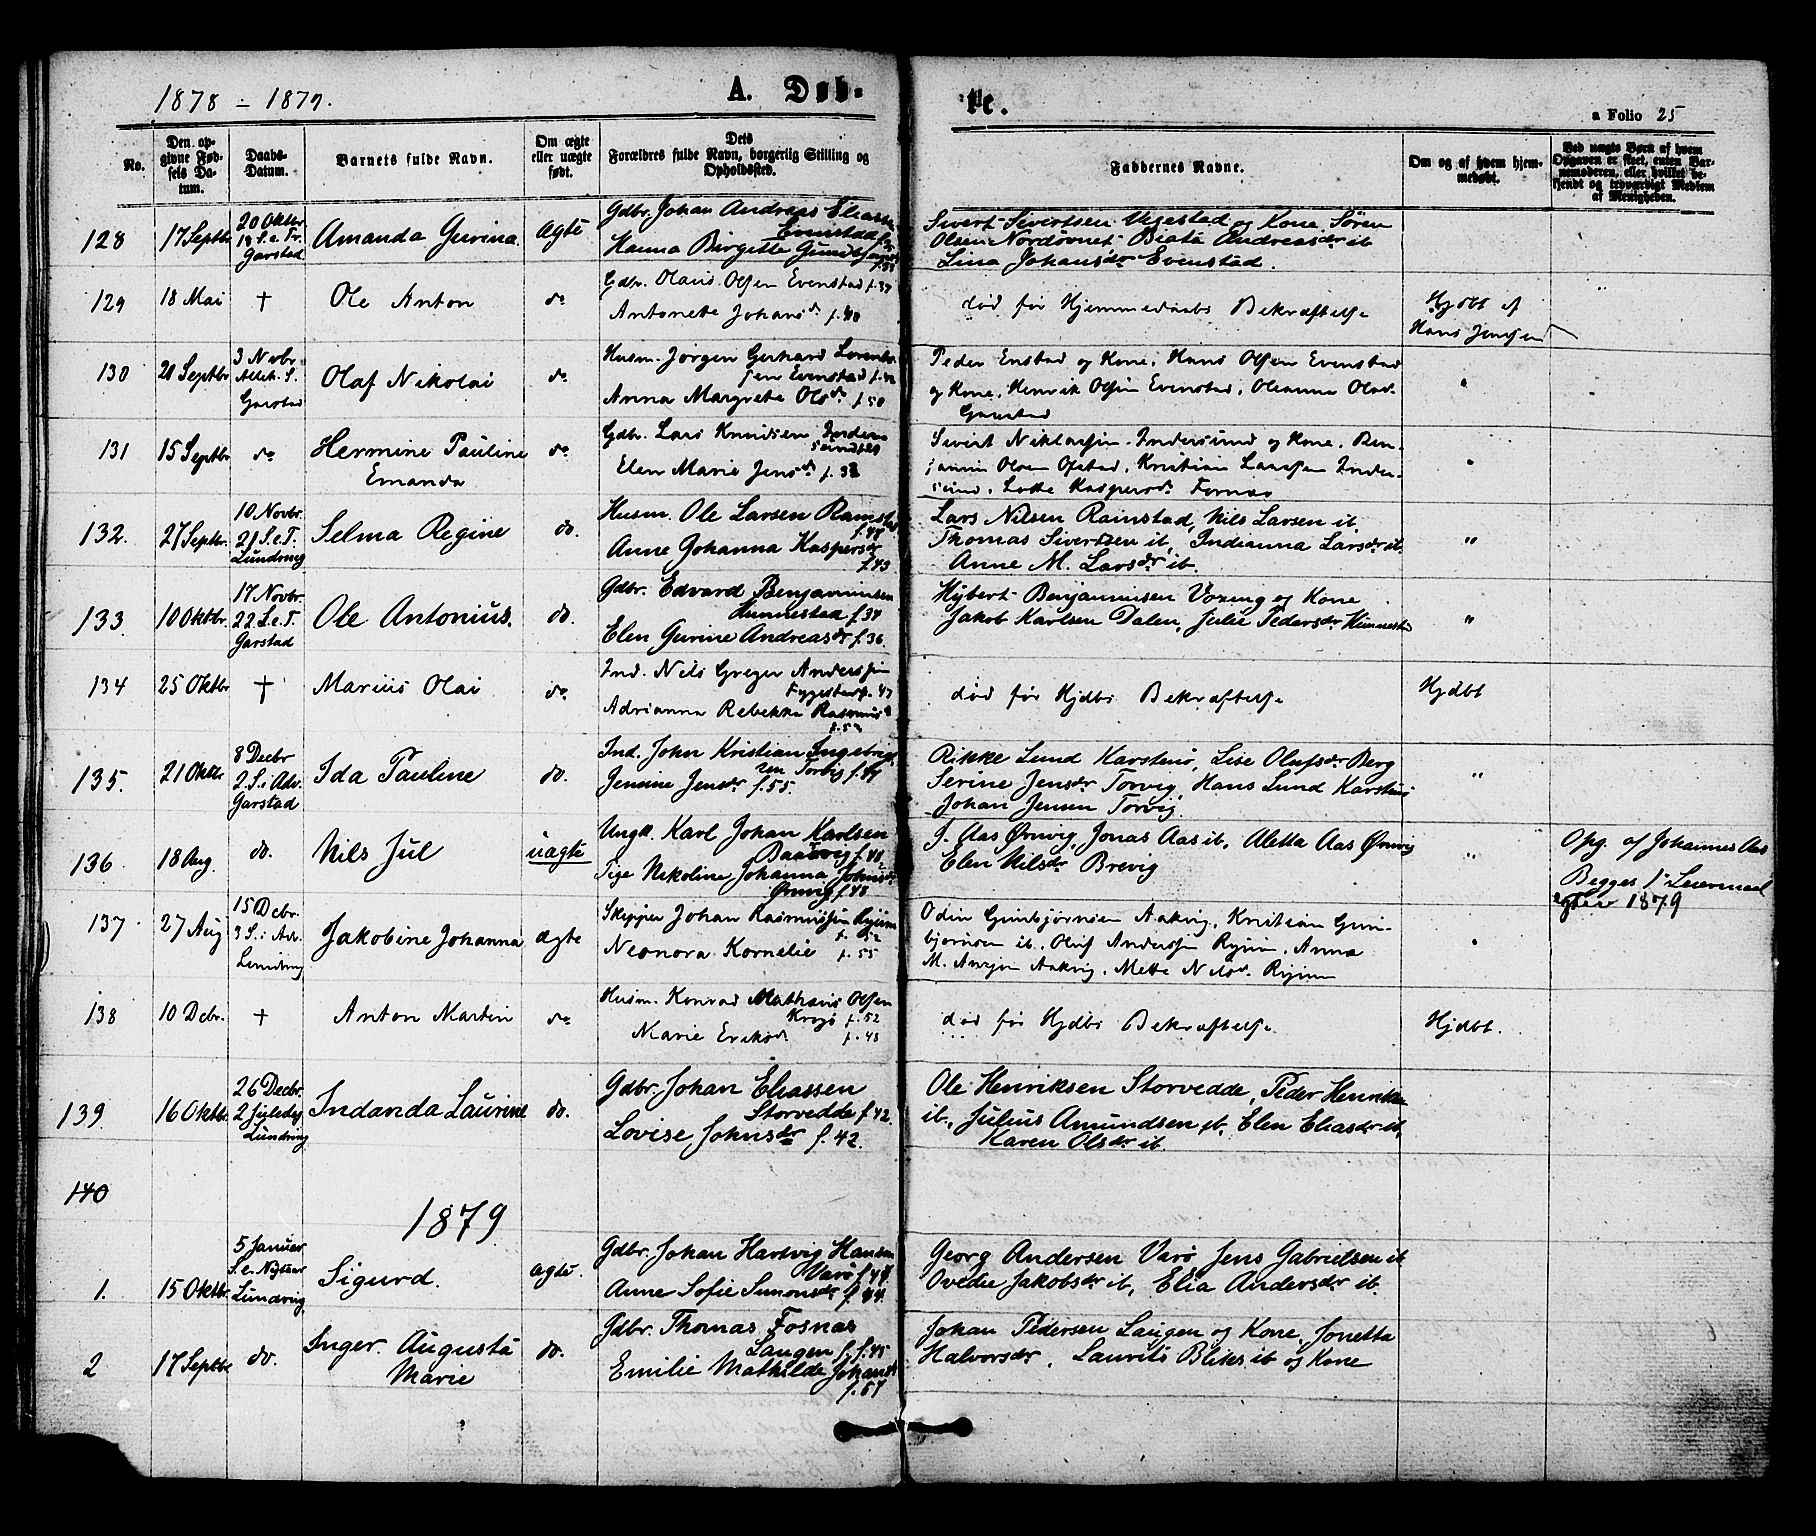 1878 – 1879.
A. Døb-
te.
a Folio 25
No.
Den opgivne Fødsels Datum.
Daabs-Datum.
Barnets fulde Navn.
Om ægte eller uægte født.
Dets Forældres fulde Navn, borgerlig Stilling og Opholdssted.
Faddernes Navne.
Om og af hvem hjemmedøbt.
Ved uægte Børn af hvem Opgaven er skeet, enten Barnemoderen, eller hvilket bekjendt og troværdigt Medlem af Menigheden.
128 17 Septbr 20 Oktbr 18 S. e. Tr. Garstad Amanda Gurina Ægte
Gdbr. Johan Andreas Eliass
Evenstad
Hanna Birgitte
Sivert Sivertsen Vegestad og Kone, Søren
Olsen Beata Andreasdr ib
Lina Johansdr Evenstad.
129 18 Mai † Ole Anton do
Gdbr. Olaus Olsen Evenstad f. 37
Antonette Johansd. f. 40
død før Hjemmedaabs Bekræftelse
Hjdbt af
Hans Jensen
130 20 Septbr 3 Novbr Alleh. S. Garstad Olaf Nikolai do
Husm. Jørgen Gerhard Lorent
sen Evenstad
Anna Margrete Olsd. f. 50
Peder Enstad og Kone, Hans Olsen Evenstad
og Kone, Henrik Olsen Evenstad, Oleanna Olsd.
Garstad "
131 15 Septbr do Hermine Pauline do
Emanda
Gdbr. Lars Knudsen Inder
sund
Elen Marie Jensd. f. 38
Sivert Indersund og Kone, Ben-
jamin Olsen Ofstad, Kristian Larssen Inder-
sund, Lotte Kaspersd. Fornæs "
132. 27 Septbr. 10 Novbr. 21 S. e. T. Lundring Selma Regine do.
Husm. Ole Larsen Ramstad
f. 44
Anne Johanna Kaspersdr
f. 43
Lars Nilsen Ramstad, Nils Larsen ib.
Thomas Sivertsen ib, Indianna Larsdr ib.
Anne M. Larsdr ib. "
133. 10 Oktbr. 17 Novbr. 22 S. e. T. Garstad Ole Antonius. do.
Gdbr. Edvard Benjaminsen
Hunnestad f. 34
Elen Gurine Andreasdr f. 36.
Hybert Benjaminsen Voxeng og Kone
Jakob Karlsen Dalen, Julie Pedersdr Hunnesta "
134 25 Oktbr † Marius Olai do
Ind. Nils Greger Anderssen
f. 47
Adrianna Rebekka Rasmusd
død før Hjdbs Bekræftelse
Hjdbt
135. 21 Oktbr 8 Decbr 2 S. i Adv. Garstad Ida Pauline do.
Ind. John Kristian Ingebrigt
sen Torvig
Jensine Jensdr f. 55.
Rikke Lund Karstenø, Lise Olufsdr Berg
Serine Jensdr Torvig, Hans Lund Karstenø
Johan Jensen Torvig. "
136. 18 Aug. do. Nils Jul uægte
Ungk. Karl Johan Karlsen
f. 48,
Pige Nikoline Johanna Johnsdr
Ørnvig f. 48
J. Aas Ørnvig, Jonas Aas ib, Aletta Aas Ørnvig
Elen Nilsdr Brevig "
Opg. af Johannes Aas
Begges 1ste Leiermaal
1879
137. 27 Aug 15 Debr. 3 S. i Adv. Lundring Jakobine Johanna ægte
Skipper Johan Rasmussen Ryum
f. 52
Neonora Kornelie f. 55
Odin Gunbjørnsen Aakvig, Kristian Gun-
bjørnsen ib., Oluf Anderssen Ryum, Anna
M. Aakvig, Mette Nilsd. Ryum "
138 10 Debr. † Anton Martin do
Husm. Konrad Mathæus Olsen
Krogø f. 52
Marie Eriksd. f. 48
død før Hjdbs Bekræftelse
Hjdbt.
139. 16 Oktbr. 26 Decbr. 2 Juledag Lundring Indanda Laurine do.
Gdbr. Johan Eliassen
Storvedde f. 42.
Lovise Johnsdr f. 42.
Ole Henriksen Storvedde, Peder Henriksen
ib., Julius Amundsen ib, Elen Eliasdr ib,
Karen Olsdr ib.
140
1879
1. 15 Oktbr. 5 Januar S. e. Nytaar Lundring Sigurd. ægte.
Gdbr. Johan Hartvig Hansen
Varø f. 44.
Anne Sofie Simonsdr f. 44.
Georg Andersen Varø, Jens Gabrielsen ib
Ovedie Jakobsdr ib, Elia Andersdr ib.
2 17 Septbr do. Inger Augusta do.
Marie
Gdbr. Thomas Fosnæs
Laugen f. 45
Emilie Mathilde Johansdr
f. 57
Johan Pedersen Laugen og Kone, Jonetta
Halvorsdr, Laurits Bliks ib og Kone